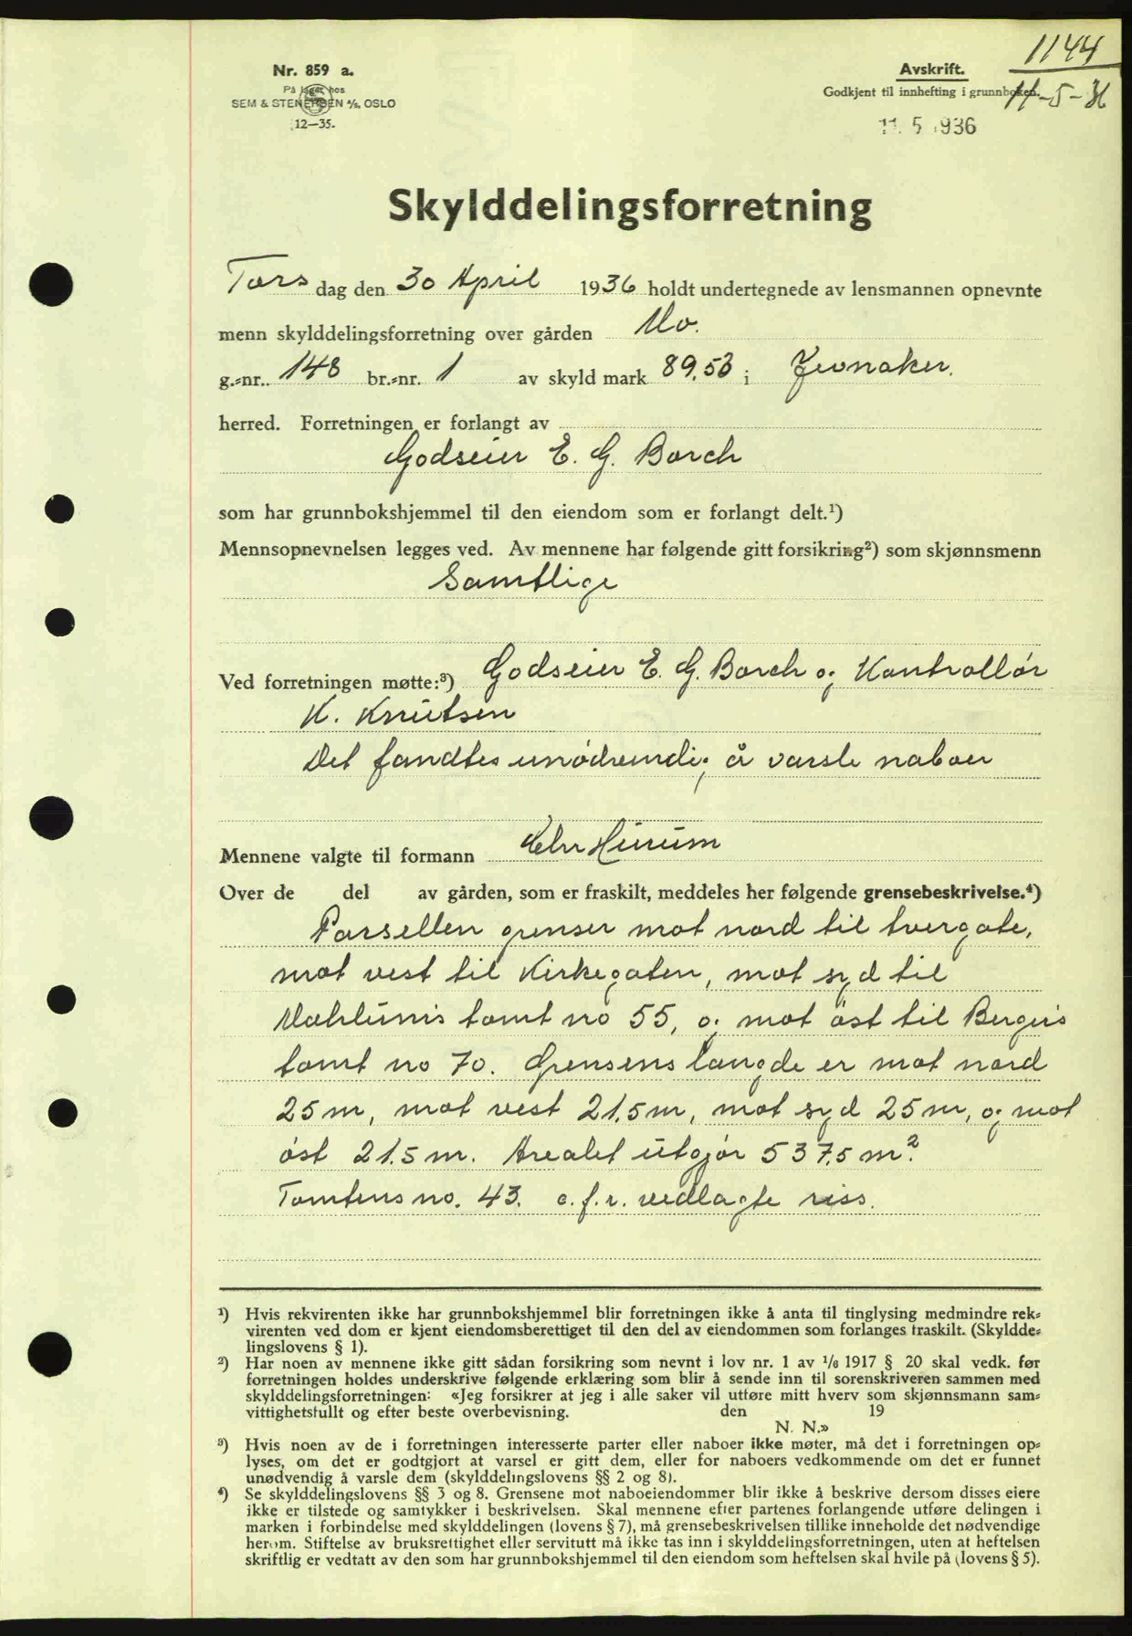 1144
11-5-36
Nr. 859 a.
På lager hos
SEM & STENERSEN A/S, OSLO
12—35.
Avskrift.
Godkjent til innhefting i grunnboken.
11. 5. 1936
Skylddelingsforretning
Tors dag den 30 April 1936 holdt undertegnede av lensmannen opnevnte
menn skylddelingsforretning over gården Mo.
g.=nr. 148 br.=nr. 1 av skyld mark 89,53 i Jevnaker.
herred. Forretningen er forlangt av
Godseier E. G. Borch
som har grunnbokshjemmel til den eiendom som er forlangt delt.¹)
Mennsopnevnelsen legges ved. Av mennene har følgende gitt forsikring²) som skjønnsmenn
Samtlige
Ved forretningen møtte:³) Godseier E. G. Borch og Kontrollør
K. Knutsen
Det fandtes unødvendig å varsle naboer
Mennene valgte til formann Chr Hurum
Over de del av gården, som er fraskilt, meddeles her følgende grensebeskrivelse.⁴)
Parsellen grenser mot nord til tvergate,
mot vest til Kirkegaten, mot syd til
tomt no 55, og mot øst til Bergers
tomt no 70. Grensens længde er mot nord
25 m, mot vest 21,5 m, mot syd 25 m, og mot
øst 21.5 m. Arealet utgjør 537,5 m².
Tomtens no. 43. c.f.r. vedlagte riss.
¹) Hvis rekvirenten ikke har grunnbokshjemmel blir forretningen ikke å anta til tinglysing medmindre rek=
virenten ved dom er kjent eiendomsberettiget til den del av eiendommen som forlanges fraskilt. (Skyldde=
lingslovens § 1).
²) Har noen av mennene ikke gitt sådan forsikring som nevnt i lov nr. 1 av 1/6 1917 § 20 skal vedk. før
forretningen holdes underskrive følgende erklæring som blir å sende inn til sorenskriveren sammen med
skylddelingsforretningen: «Jeg forsikrer at jeg i alle saker vil utføre mitt hverv som skjønnsmann sam=
vittighetsfullt og efter beste overbevisning. den 19
N. N.»
³) Hvis noen av de i forretningen interesserte parter eller naboer ikke møter, må det i forretningen op=
lyses, om det er godtgjort at varsel er gitt dem, eller for naboers vedkommende om det er funnet
unødvendig å varsle dem (skylddelingslovens §§ 2 og 8).
⁴) Se skylddelingslovens §§ 3 og 8. Grensene mot naboeiendommer blir ikke å beskrive dersom disses eiere
ikke er tilstede og samtykker i beskrivelsen. Skal mennene efter partenes forlangende utføre delingen i
marken i forbindelse med skylddelingen (lovens § 7), må grensebeskrivelsen tillike inneholde det nødvendige
herom. Stiftelse av bruksrettighet eller servitutt må ikke tas inn i skylddelingsforretningen, uten at heftelsen
skriftlig er vedtatt av den som har grunnbokshjemmel til den eiendom som heftelsen skal hvile på (lovens § 5).